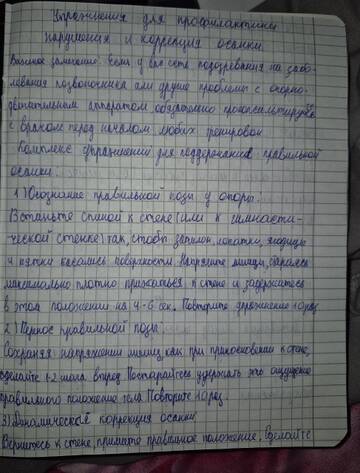 Упражнения для профилактики
нарушения и коррекция осанки.
Важное замечание: если у вас есть подозрения на забо-
левания позвоночника или другие проблемы с опорно-
двигательным аппаратом обязательно проконсультируйтесь
с врачом перед началом любых тренировок
Комплекс упражнений для поддержания правильной
осанки.
1) Осознание правильной позы у опоры.
Встаньте спиной к стене (или к гимнасти-
ческой стенке) так, чтобы затылок, лопатки, ягодицы
и пятки касались поверхности. Напрягите мышцы, стараясь
максимально плотно прижаться к стене и задержитесь
в этом положении на 4-6 сек. Повторите упражнение 10 раз
2) Перенос правильной позы.
Сохраняя напряжение мышц, как при прикосновении к стене,
сделайте 1-2 шага вперед. Постарайтесь удержать это ощущение
правильного положения тела. Повторите 10 раз.
3) Динамическая коррекция осанки.
Вернитесь к стене, примите правильное положение. Сделайте